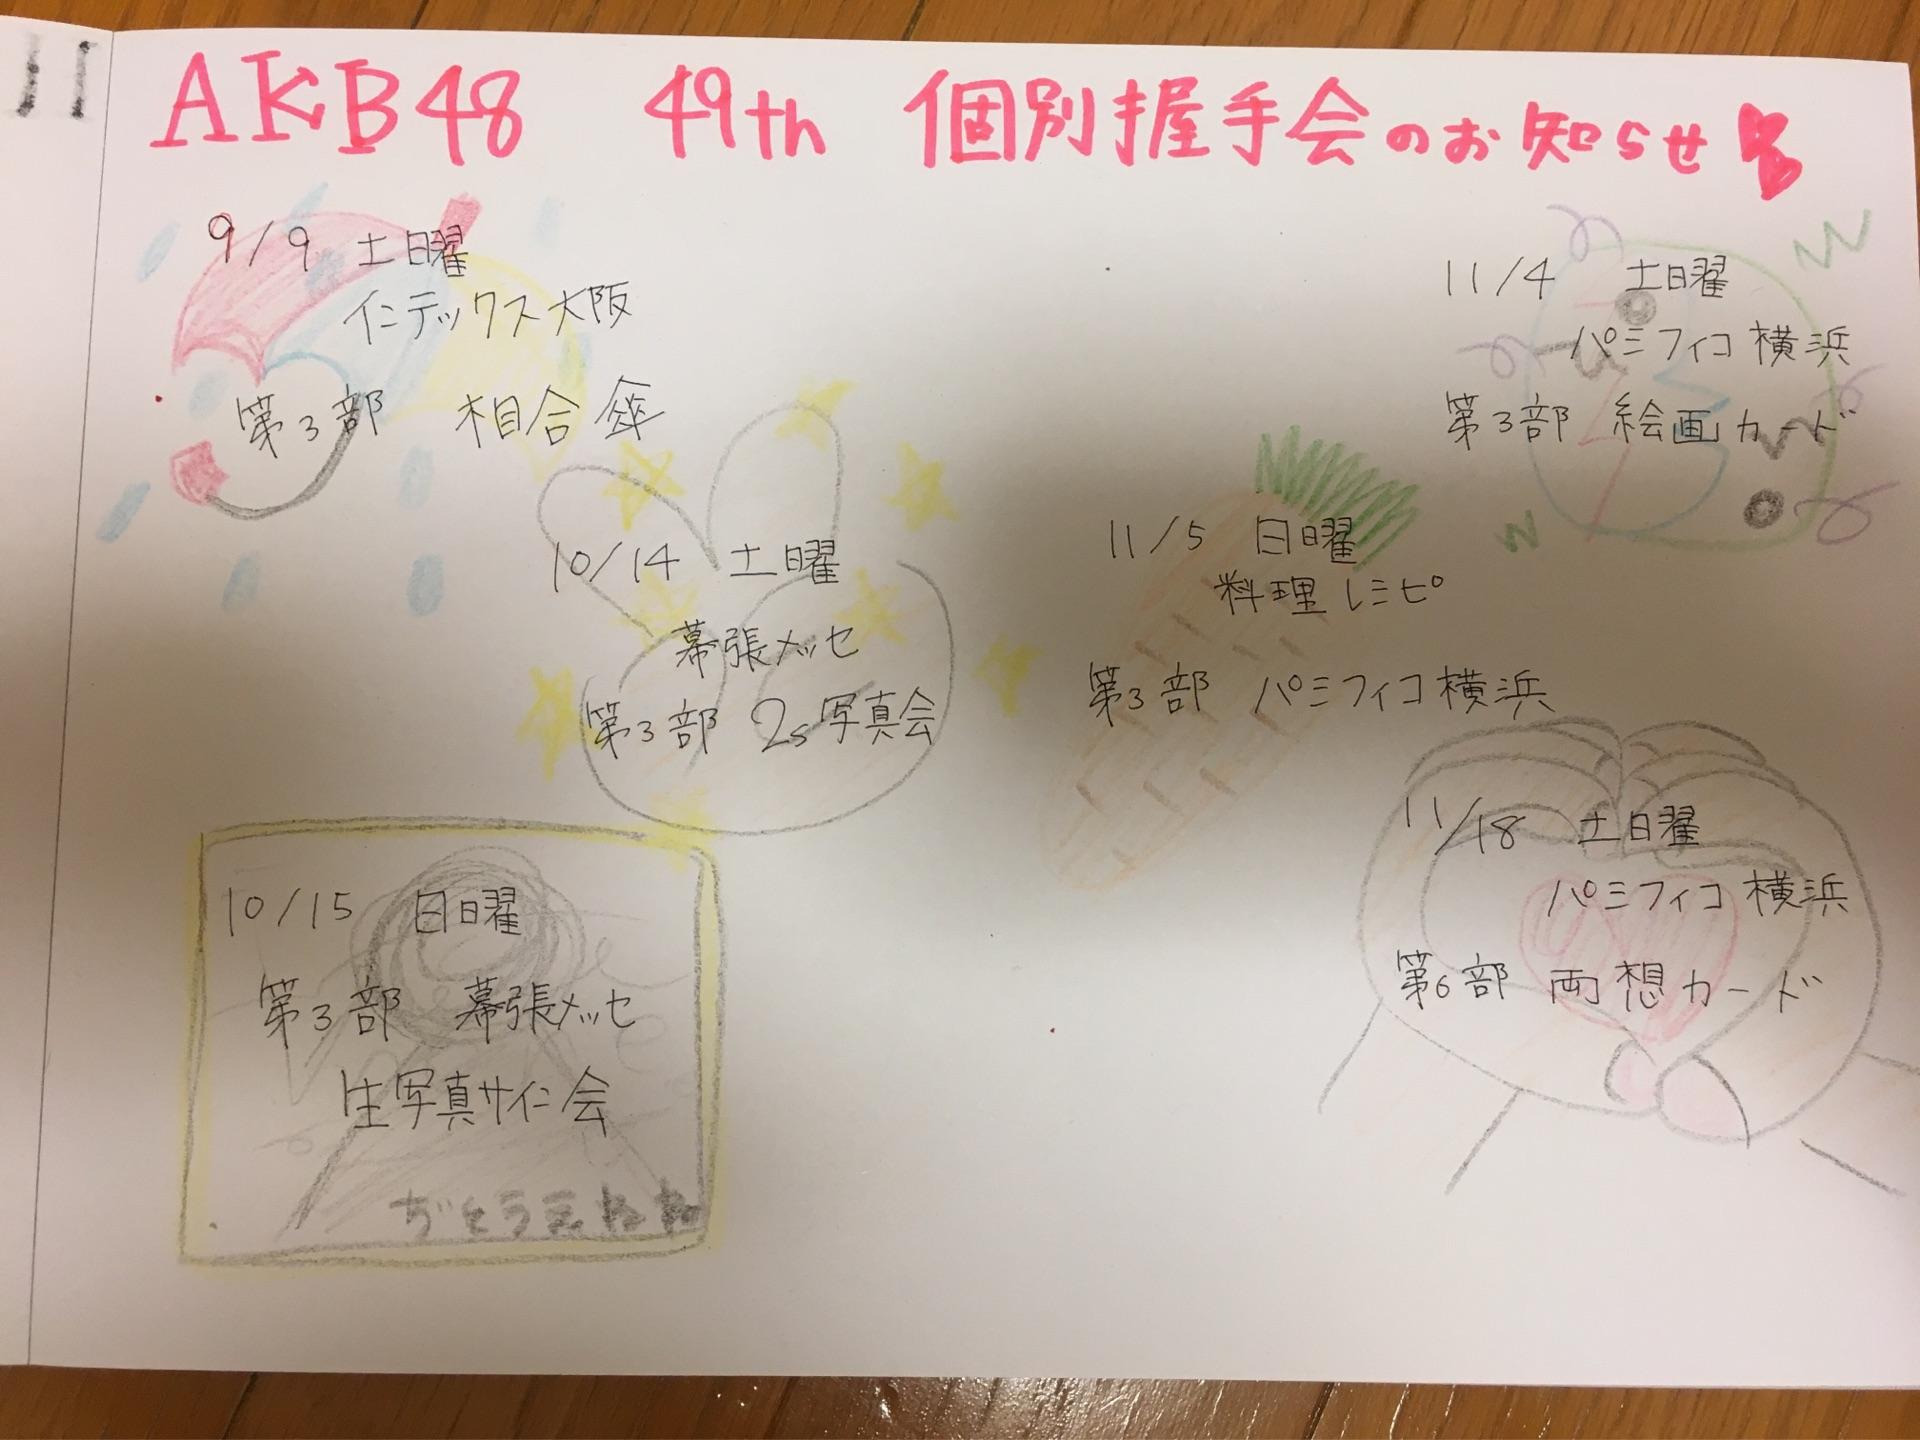 AKB48 49th 個別握手会のお知らせ
9/9 土日曜
インテックス大阪
第3部 相合傘
10/14 土日曜
幕張メッセ
第3部 2s写真会
10/15 日日曜
第3部 幕張メッセ
生写真サイン会
11/4 土日曜
パシフィコ横浜
第3部 絵画カード
11/5 日日曜
料理レシピ
第3部 パシフィコ横浜
11/18 土日曜
パシフィコ横浜
第6部 両想カード